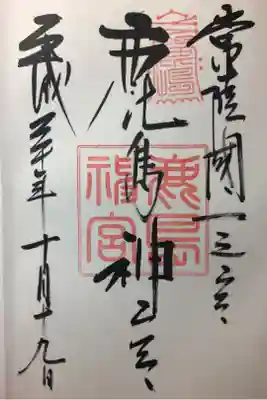 常陸國一之宮
鹿島神宮
鹿島
神宮
平成三十年十月十九日